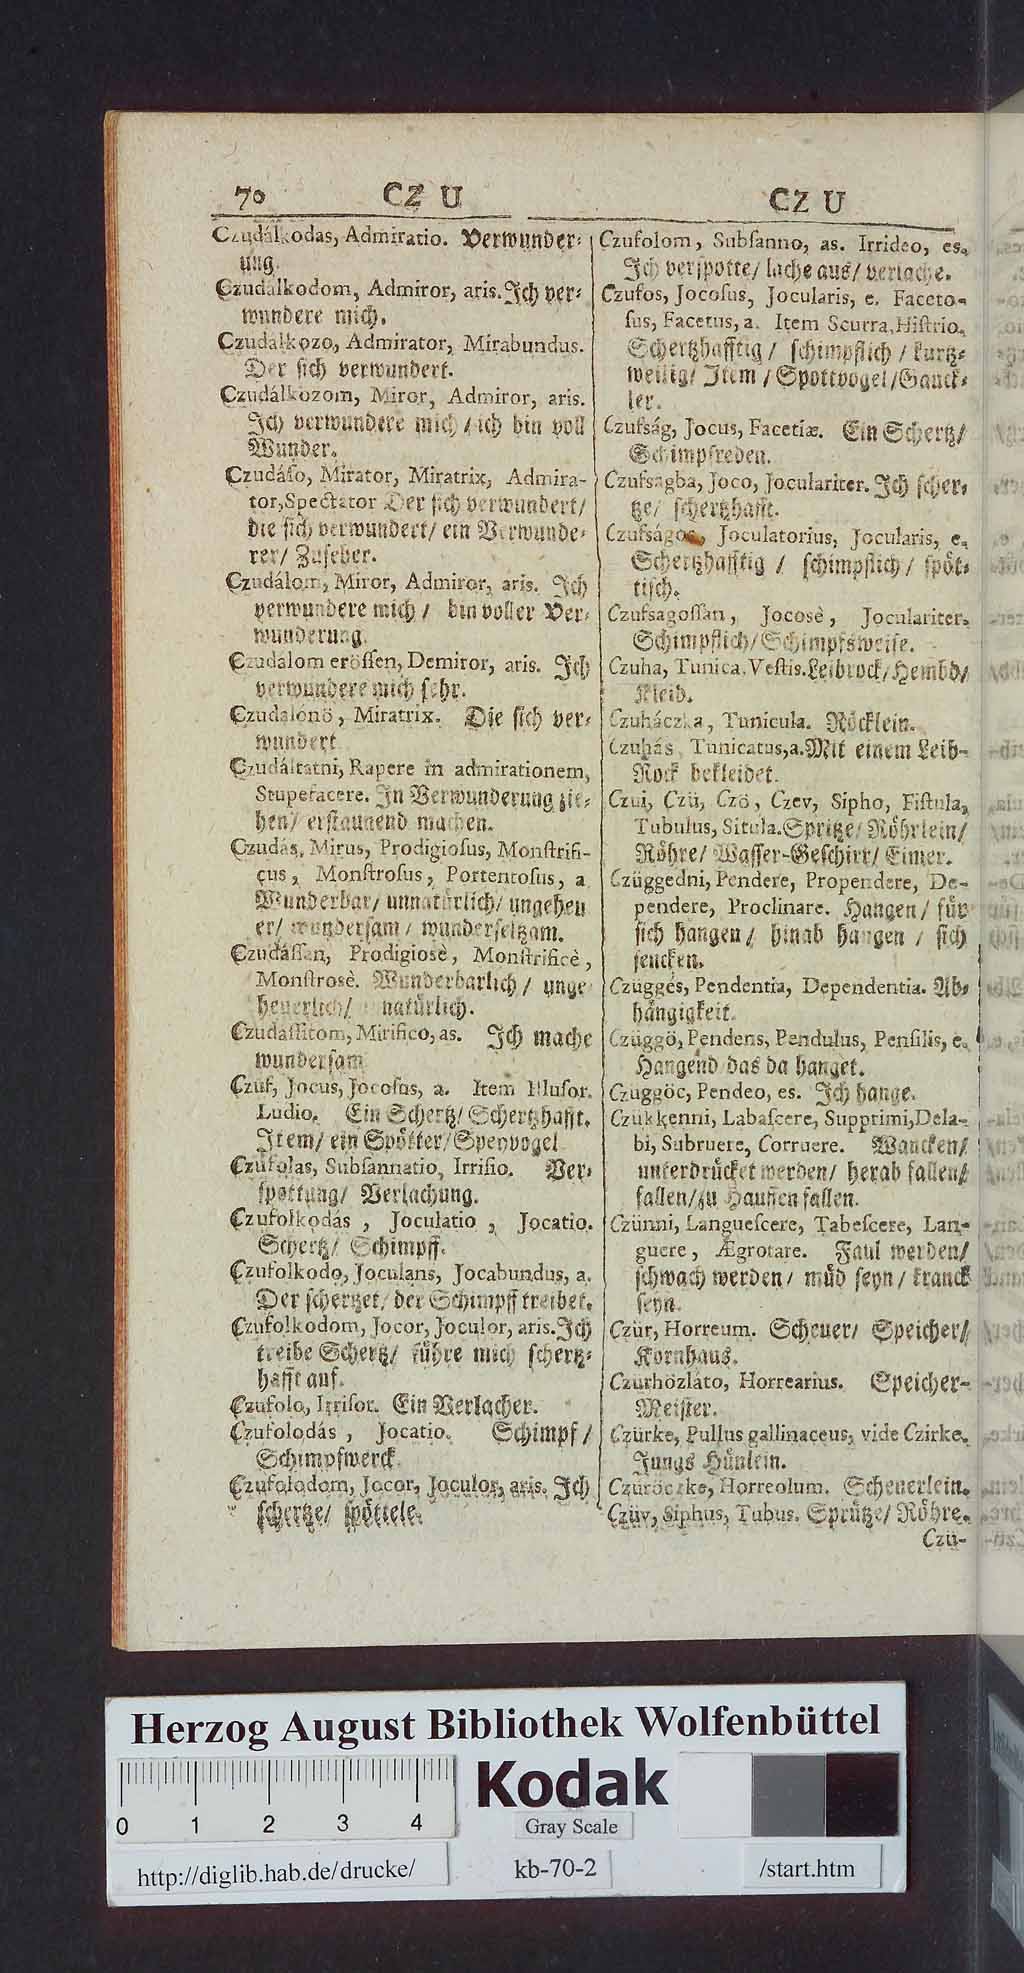 70 CZ U
Czudálkodas, Admiratio. Verwunder-
ung.
Czudálkodom, Admiror, aris. Ich ver-
wundere mich.
Czudálkozo, Admirator, Mirabundus.
Der sich verwundert.
Czudálkozom, Miror, Admiror, aris.
Ich verwundere mich / ich bin voll
Wunder.
Czudáſo, Mirator, Miratrix, Admira-
tor, Spectator Der sich verwundert/
die sich verwundert/ ein Verwunde-
rer/ Zuseher.
Czudálom, Miror, Admiror, aris. Ich
verwundere mich / bin voller Ver-
wunderung.
Czudálom erösſen, Demiror, aris. Ich
verwundere mich sehr.
Czudalónö, Miratrix. Die sich ver-
wundert
Czudáltatni, Rapere in admirationem,
Stupefacere. In Verwunderung zie-
hen/ erstaunend machen.
Czudás, Mirus, Prodigioſus, Monſtrifi-
cus, Monſtroſus, Portentoſus, a
Wunderbar/ unnatürlich/ ungeheu
er/ wundersam / wunderseltzam.
Czudásſan, Prodigiosè, Monſtrificè,
Monſtrosè. Wunderbarlich / unge
heuerlich/ natürlich.
Czudasſitom, Mirifico, as. Ich mache
wundersam
Czuf, Jocus, Jocoſus, a. Item Illuſor.
Ludio. Ein Schertz/ Schertzhafft.
Item/ ein Spötter/ Speyvogel
Czúfolas, Subſannatio, Irriſio. Ver-
spottung/ Verlachung.
Czufolkodás, Joculatio, Jocatio.
Schertz/ Schimpff.
Czufolkodo, Joculans, Jocabundus, a.
Der schertzet/ der Schimpff treibet.
Czufolkodom, Jocor, Joculor, aris. Ich
treibe Schertz/ führe mich schertz-
hafft auf.
Czufolo, Irriſor. Ein Verlacher.
Czufolodás, Jocatio. Schimpf /
Schimpfwerck.
Czufolodom, Jocor, Joculor, aris. Ich
schertze/ spöttele.
CZ U
Czufolom, Subſanno, as. Irrideo, es.
Ich verspotte/ lache aus/ verlache.
Czufos, Jocoſus, Jocularis, e. Faceto-
ſus, Facetus, a. Item Scurra, Hiſtrio.
Schertzhafftig / schimpflich / kurtz-
weilig/ Item / Spottvogel/ Gauck-
ler.
Czufság, Jocus, Facetiæ. Ein Schertz/
Schimpfreden.
Czufságba, Joco, Joculariter. Ich scher-
tze/ schertzhafft.
Czufságos, Joculatorius, Jocularis, e.
Schertzhafftig / schimpflich / spöt-
tisch.
Czufsagosſan, Jocosè, Joculariter.
Schimpflich/ Schimpfsweise.
Czuha, Tunica. Veſtis. Leibrock/ Hembd/
Kleid.
Czuháczka, Tunicula. Röcklein.
Czuhás, Tunicatus, a. Mit einem Leib-
Rock bekleidet.
Czui, Czü, Czö, Czev, Sipho, Fiſtula,
Tubulus, Situla. Spritze/ Röhrlein/
Röhre/ Wasser-Geschirr/ Eimer.
Czüggedni, Pendere, Propendere, De-
pendere, Proclinare. Hangen / für
sich hangen / hinab hangen / sich
sencken.
Czüggés, Pendentia, Dependentia. Ab-
hängigkeit.
Czüggö, Pendens, Pendulus, Penſilis, e.
Hangend/ das da hanget.
Czüggöc, Pendeo, es. Ich hange.
Czükkenni, Labaſcere, Supprimi, Dela-
bi, Subruere, Corruere. Wancken/
unterdrücket werden/ herab fallen/
fallen/ zu Hauffen fallen.
Czünni, Langueſcere, Tabeſcere, Lan-
guere, Ægrotare. Faul werden/
schwach werden / müd seyn / kranck
seyn.
Czür, Horreum. Scheuer/ Speicher/
Kornhaus.
Czürhözláto, Horrearius. Speicher-
Meister.
Czürke, Pullus gallinaceus, vide Czirke.
Jungs Hünlein.
Czüröczke, Horreolum. Scheuerlein.
Czüv, Siphus, Tubus. Sprütze/ Röhre.
Czü-
Herzog August Bibliothek Wolfenbüttel
0 1 2 3 4
Kodak
Gray Scale
http://diglib.hab.de/drucke/ kb-70-2 /start.htm